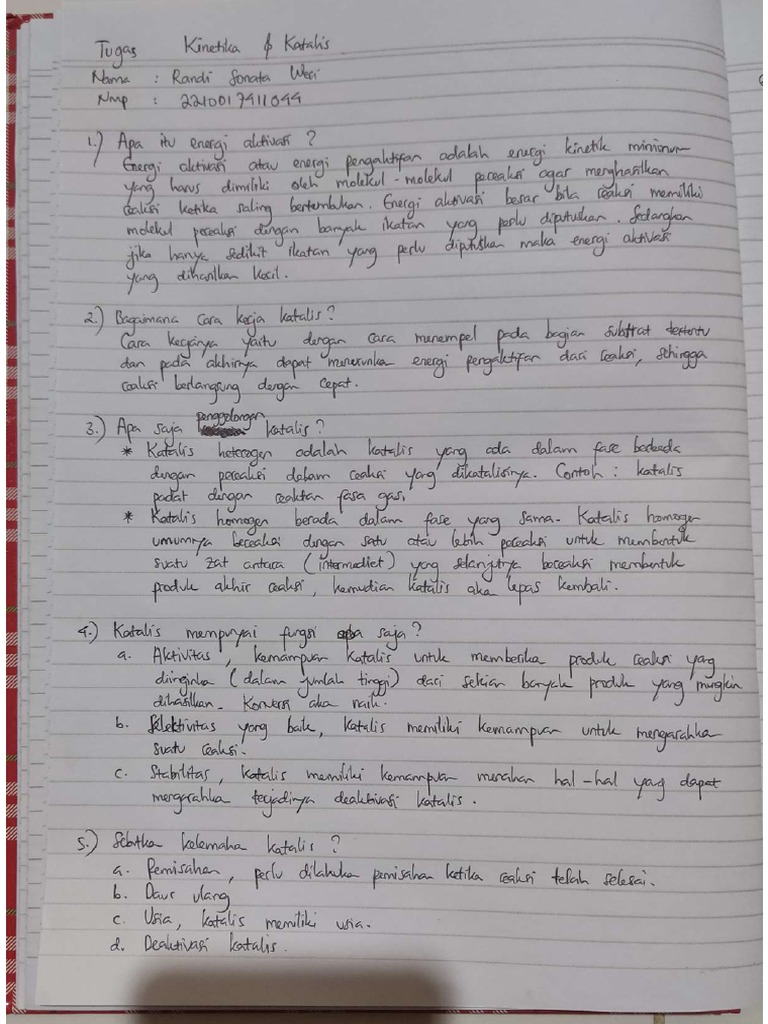 Tugas Kinetika & Katalis
Nama : Randi Sonata Wesi
Nmp : 2210017411044
1.) Apa itu energi aktivasi ?
Energi aktivasi atau energi pengaktifan adalah energi kinetik minimum
yang harus dimiliki oleh molekul-molekul pereaksi agar menghasilkan
reaksi ketika saling bertembukan. Energi aktivasi besar bila reaksi memiliki
molekul pereaksi dengan banyak ikatan yang perlu diputuskan. Sedangkan
jika hanya sedikit ikatan yang perlu diputuskan maka energi aktivasi
yang dihasilkan kecil.
2.) Bagaimana Cara kerja katalis ?
Cara kerjanya yaitu dengan cara menempel pada bagian substrat tertentu
dan pada akhirnya dapat menurunka energi pengaktifan dari reaksi, sehingga
reaksi berlangsung dengan cepat.
3.) Apa saja penggolongan katalis ?
* Katalis heterogen adalah katalis yang ada dalam fase berbeda
dengan pereaksi dalam reaksi yang dikatalisinya. Contoh : katalis
padat dengan reaktan fasa gas.
* Katalis homogen berada dalam fase yang sama. Katalis homogen
umumnya bereaksi dengan satu atau lebih pereaksi untuk membentuk
suatu zat antara (intermediet) yang selanjutnya bereaksi membentuk
produk akhir reaksi, kemudian katalis aka lepas kembali.
4.) Katalis mempunyai fungsi apa saja ?
a. Aktivitas, kemampuan katalis untuk memberika produk reaksi yang
diinginka (dalam jumlah tinggi) dari sekian banyak produk yang mungkin
dihasilkan. Konversi aka naik.
b. Selektivitas yang baik, katalis memiliki kemampuan untuk mengarahka
suatu reaksi.
c. Stabilitas, katalis memiliki kemampuan menahan hal-hal yang dapat
mengarahka terjadinya deaktivasi katalis.
5.) Sebutka kelemaha katalis ?
a. Pemisahan, perlu dilakuka pemisahan ketika reaksi telah selesai.
b. Daur ulang
c. Usia, katalis memiliki usia.
d. Deaktivasi katalis.